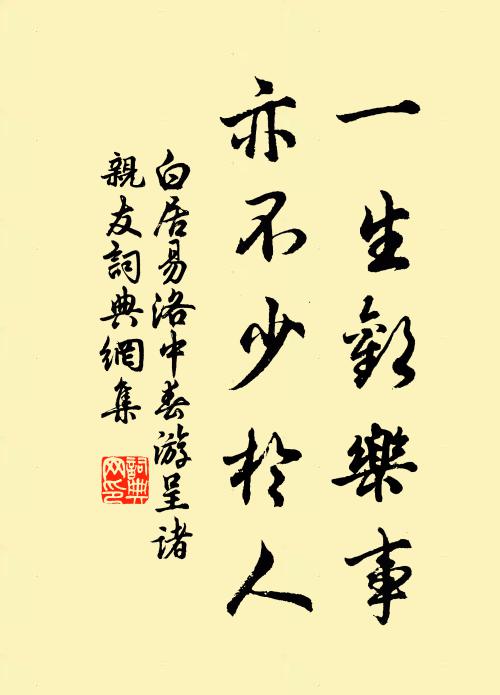 一生歡樂事
亦不少於人
白居易洛中春游呈諸
親友詞典網集
詞典
网印